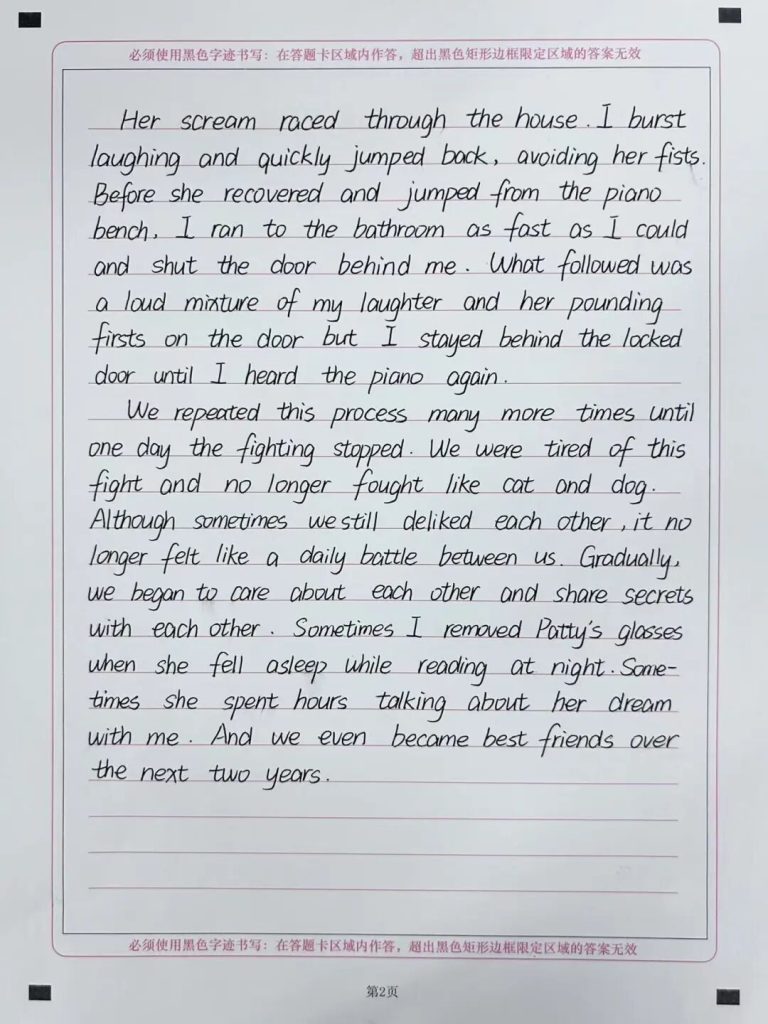 必须使用黑色字迹书写：在答题卡区域内作答，超出黑色矩形边框限定区域的答案无效
Her scream raced through the house. I burst
laughing and quickly jumped back, avoiding her fists.
Before she recovered and jumped from the piano
bench, I ran to the bathroom as fast as I could
and shut the door behind me. What followed was
a loud mixture of my laughter and her pounding
firsts on the door but I stayed behind the locked
door until I heard the piano again.
We repeated this process many more times until
one day the fighting stopped. We were tired of this
fight and no longer fought like cat and dog.
Although sometimes we still deliked each other, it no
longer felt like a daily battle between us. Gradually,
we began to care about each other and share secrets
with each other. Sometimes I removed Patty's glasses
when she fell asleep while reading at night. Some-
times she spent hours talking about her dream
with me. And we even became best friends over
the next two years.
必须使用黑色字迹书写：在答题卡区域内作答，超出黑色矩形边框限定区域的答案无效
第2页